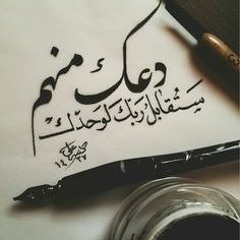 دعك منهم
ستقابل ربّك لوحدك